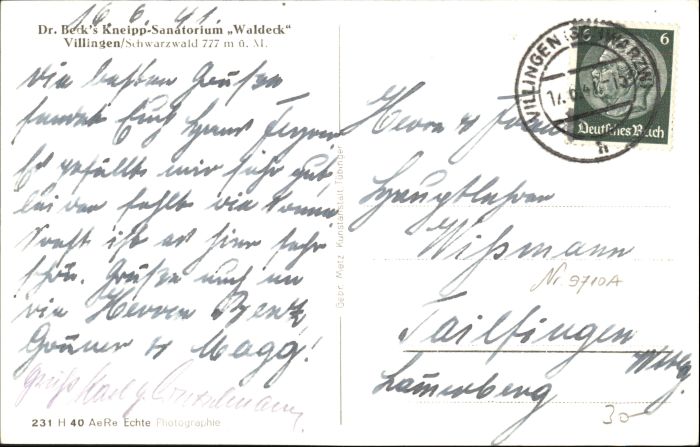 16.6.41.
Dr. Beck's Kneipp-Sanatorium „Waldeck"
Villingen/Schwarzwald 777 m ü. M.
Die besten Grüße
sendet Euch Hans
Es gefällt mir sehr gut,
leider fehlt die Sonne
Sonst ist es hier sehr
schön. Grüße auch an
die Herren Bentz,
Gonser & Magg!
Grüße Karl
231 H 40 AeRe Echte Photographie
Gebr. Metz Kunstanstalt Tübingen
VILLINGEN (SCHWARZW)
17.6.41
h
6
Deutsches Reich
Herrn &
Hauptlehrer
Wißmann
Nr. 9710A
Tailfingen
Wttbg.
Lammerberg
30